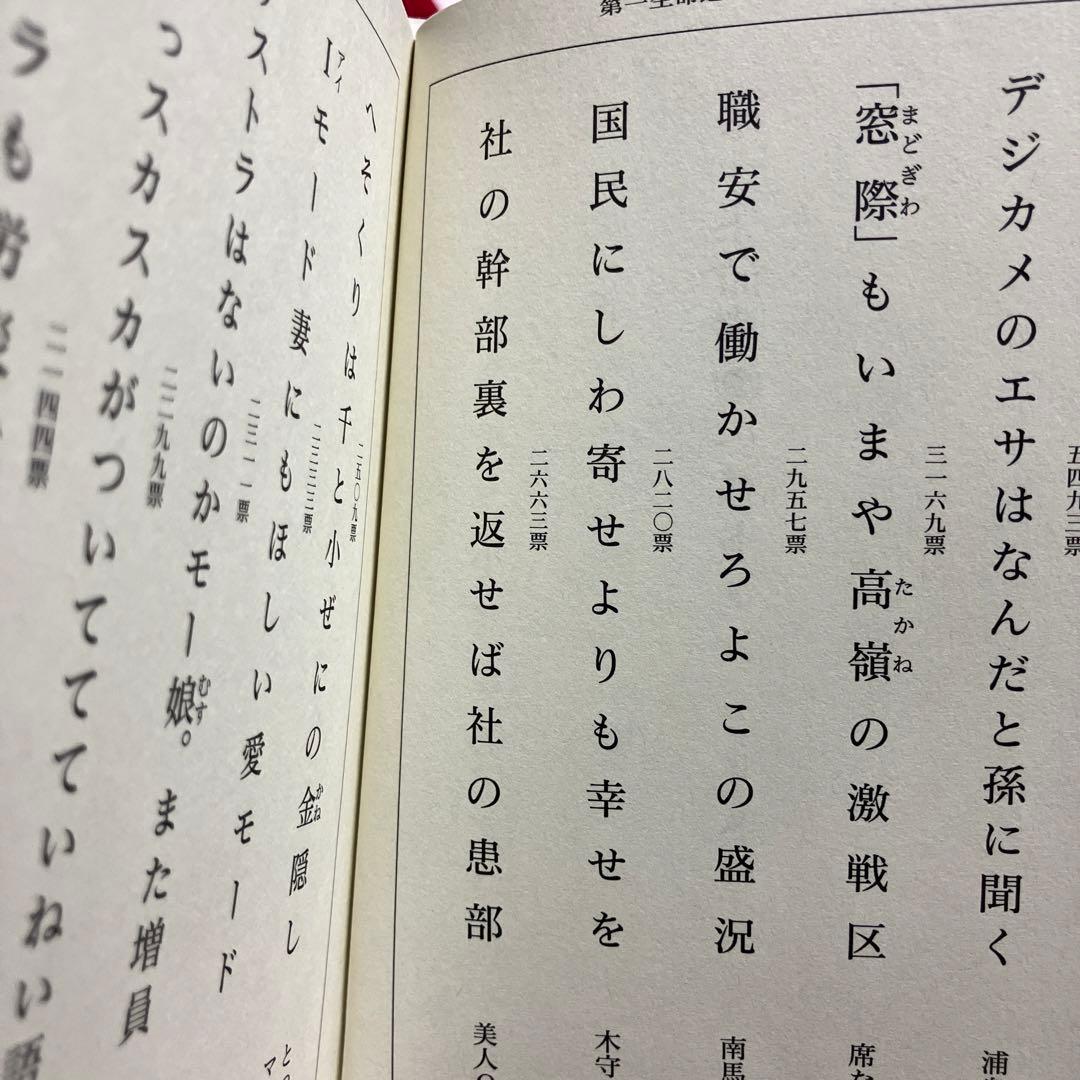 第一生命
五四九三票
デジカメのエサはなんだと孫に聞く
浦
三一六九票
「窓際」もいまや高嶺の激戦区
まどぎわ
たかね
席な
二九五七票
職安で働かせろよこの盛況
南馬
二八二〇票
国民にしわ寄せよりも幸せを
木守
二六六三票
社の幹部裏を返せば社の患部
美人
二五〇九票
へそくりは千と小ぜにの金隠し
かね
二三三三票
Iモード妻にもほしい愛モード
アイ
二三一一票
ストラはないのかモー娘。また増員
むす
二二九九票
スカスカがついててていねい語
二一四四票
ラも労